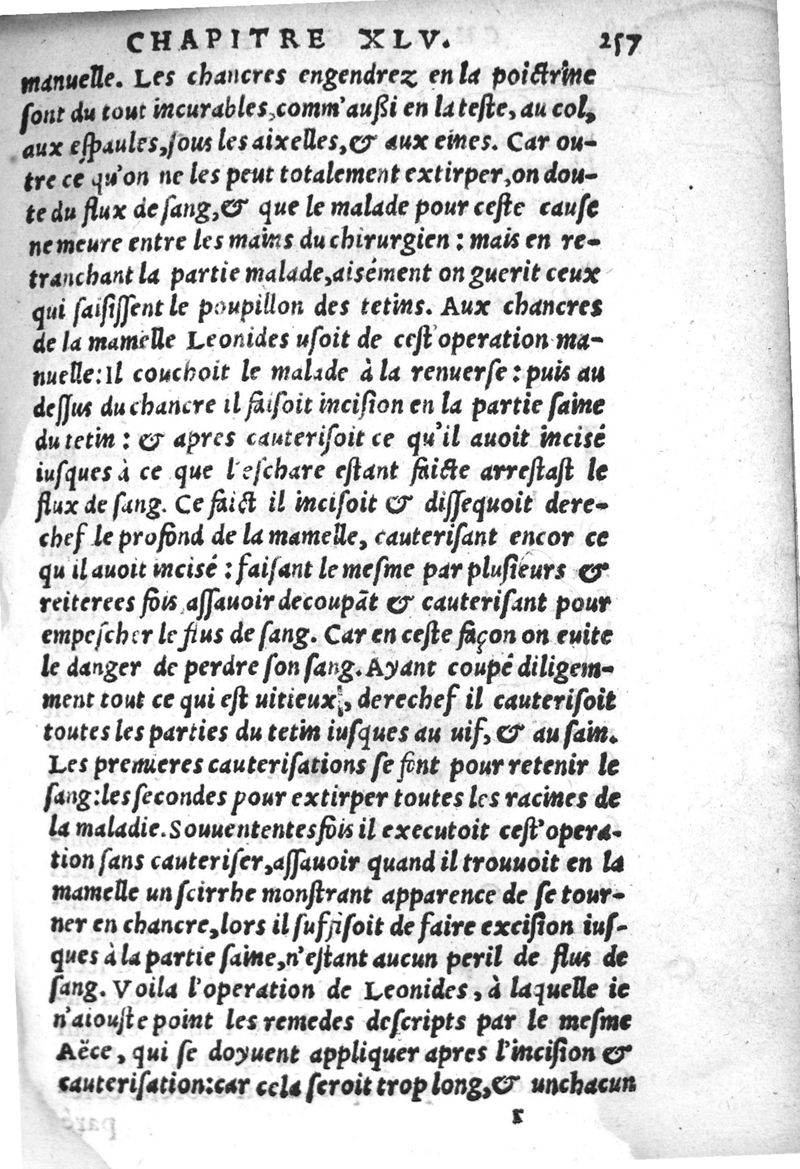 CHAPITRE XLV. 257
manuelle. Les chancres engendrez en la poictrine
ſont du tout incurables, comm'auſsi en la teſte, au col,
aux eſpaules, ſous les aixelles, & aux eines. Car ou-
tre ce qu'on ne les peut totalement extirper, on dou-
te du flux de ſang, & que le malade pour ceſte cauſe
ne meure entre les mains du chirurgien : mais en re-
tranchant la partie malade, aisément on guerit ceux
qui ſaiſiſſent le poupillon des tetins. Aux chancres
de la mamelle Leonides uſoit de ceſt'operation ma-
nuelle: Il couchoit le malade à la renuerſe : puis au
deſſus du chancre il faiſoit inciſion en la partie ſaine
du tetin : & apres cauteriſoit ce qu'il auoit incisé
iuſques à ce que l'eſchare eſtant faicte arreſtaſt le
flux de ſang. Ce faict il inciſoit & diſſequoit dere-
chef le profond de la mamelle, cauteriſant encor ce
qu il auoit incisé : faiſant le meſme par pluſieurs &
reiterees fois aſſauoir decoupāt & cauteriſant pour
empeſcher le flus de ſang. Car en ceſte façon on euite
le danger de perdre ſon ſang. Ayant coupé diligem-
ment tout ce qui eſt uitieux, derechef il cauteriſoit
toutes les parties du tetin iuſques au uif, & au ſain.
Les premieres cauteriſations ſe font pour retenir le
ſang: les ſecondes pour extirper toutes les racines de
la maladie. Souuententesfois il executoit ceſt'opera-
tion ſans cauteriſer, aſſauoir quand il trouuoit en la
mamelle un ſcirrhe monſtrant apparence de ſe tour-
ner en chancre, lors il ſuffiſoit de faire exciſion iuſ-
ques à la partie ſaine, n'eſtant aucun peril de flus de
ſang. Voila l'operation de Leonides, à laquelle ie
n'aiouſte point les remedes deſcripts par le meſme
Aëce, qui ſe doyuent appliquer apres l'inciſion &
cauteriſation: car cela ſeroit trop long, & unchacun
r